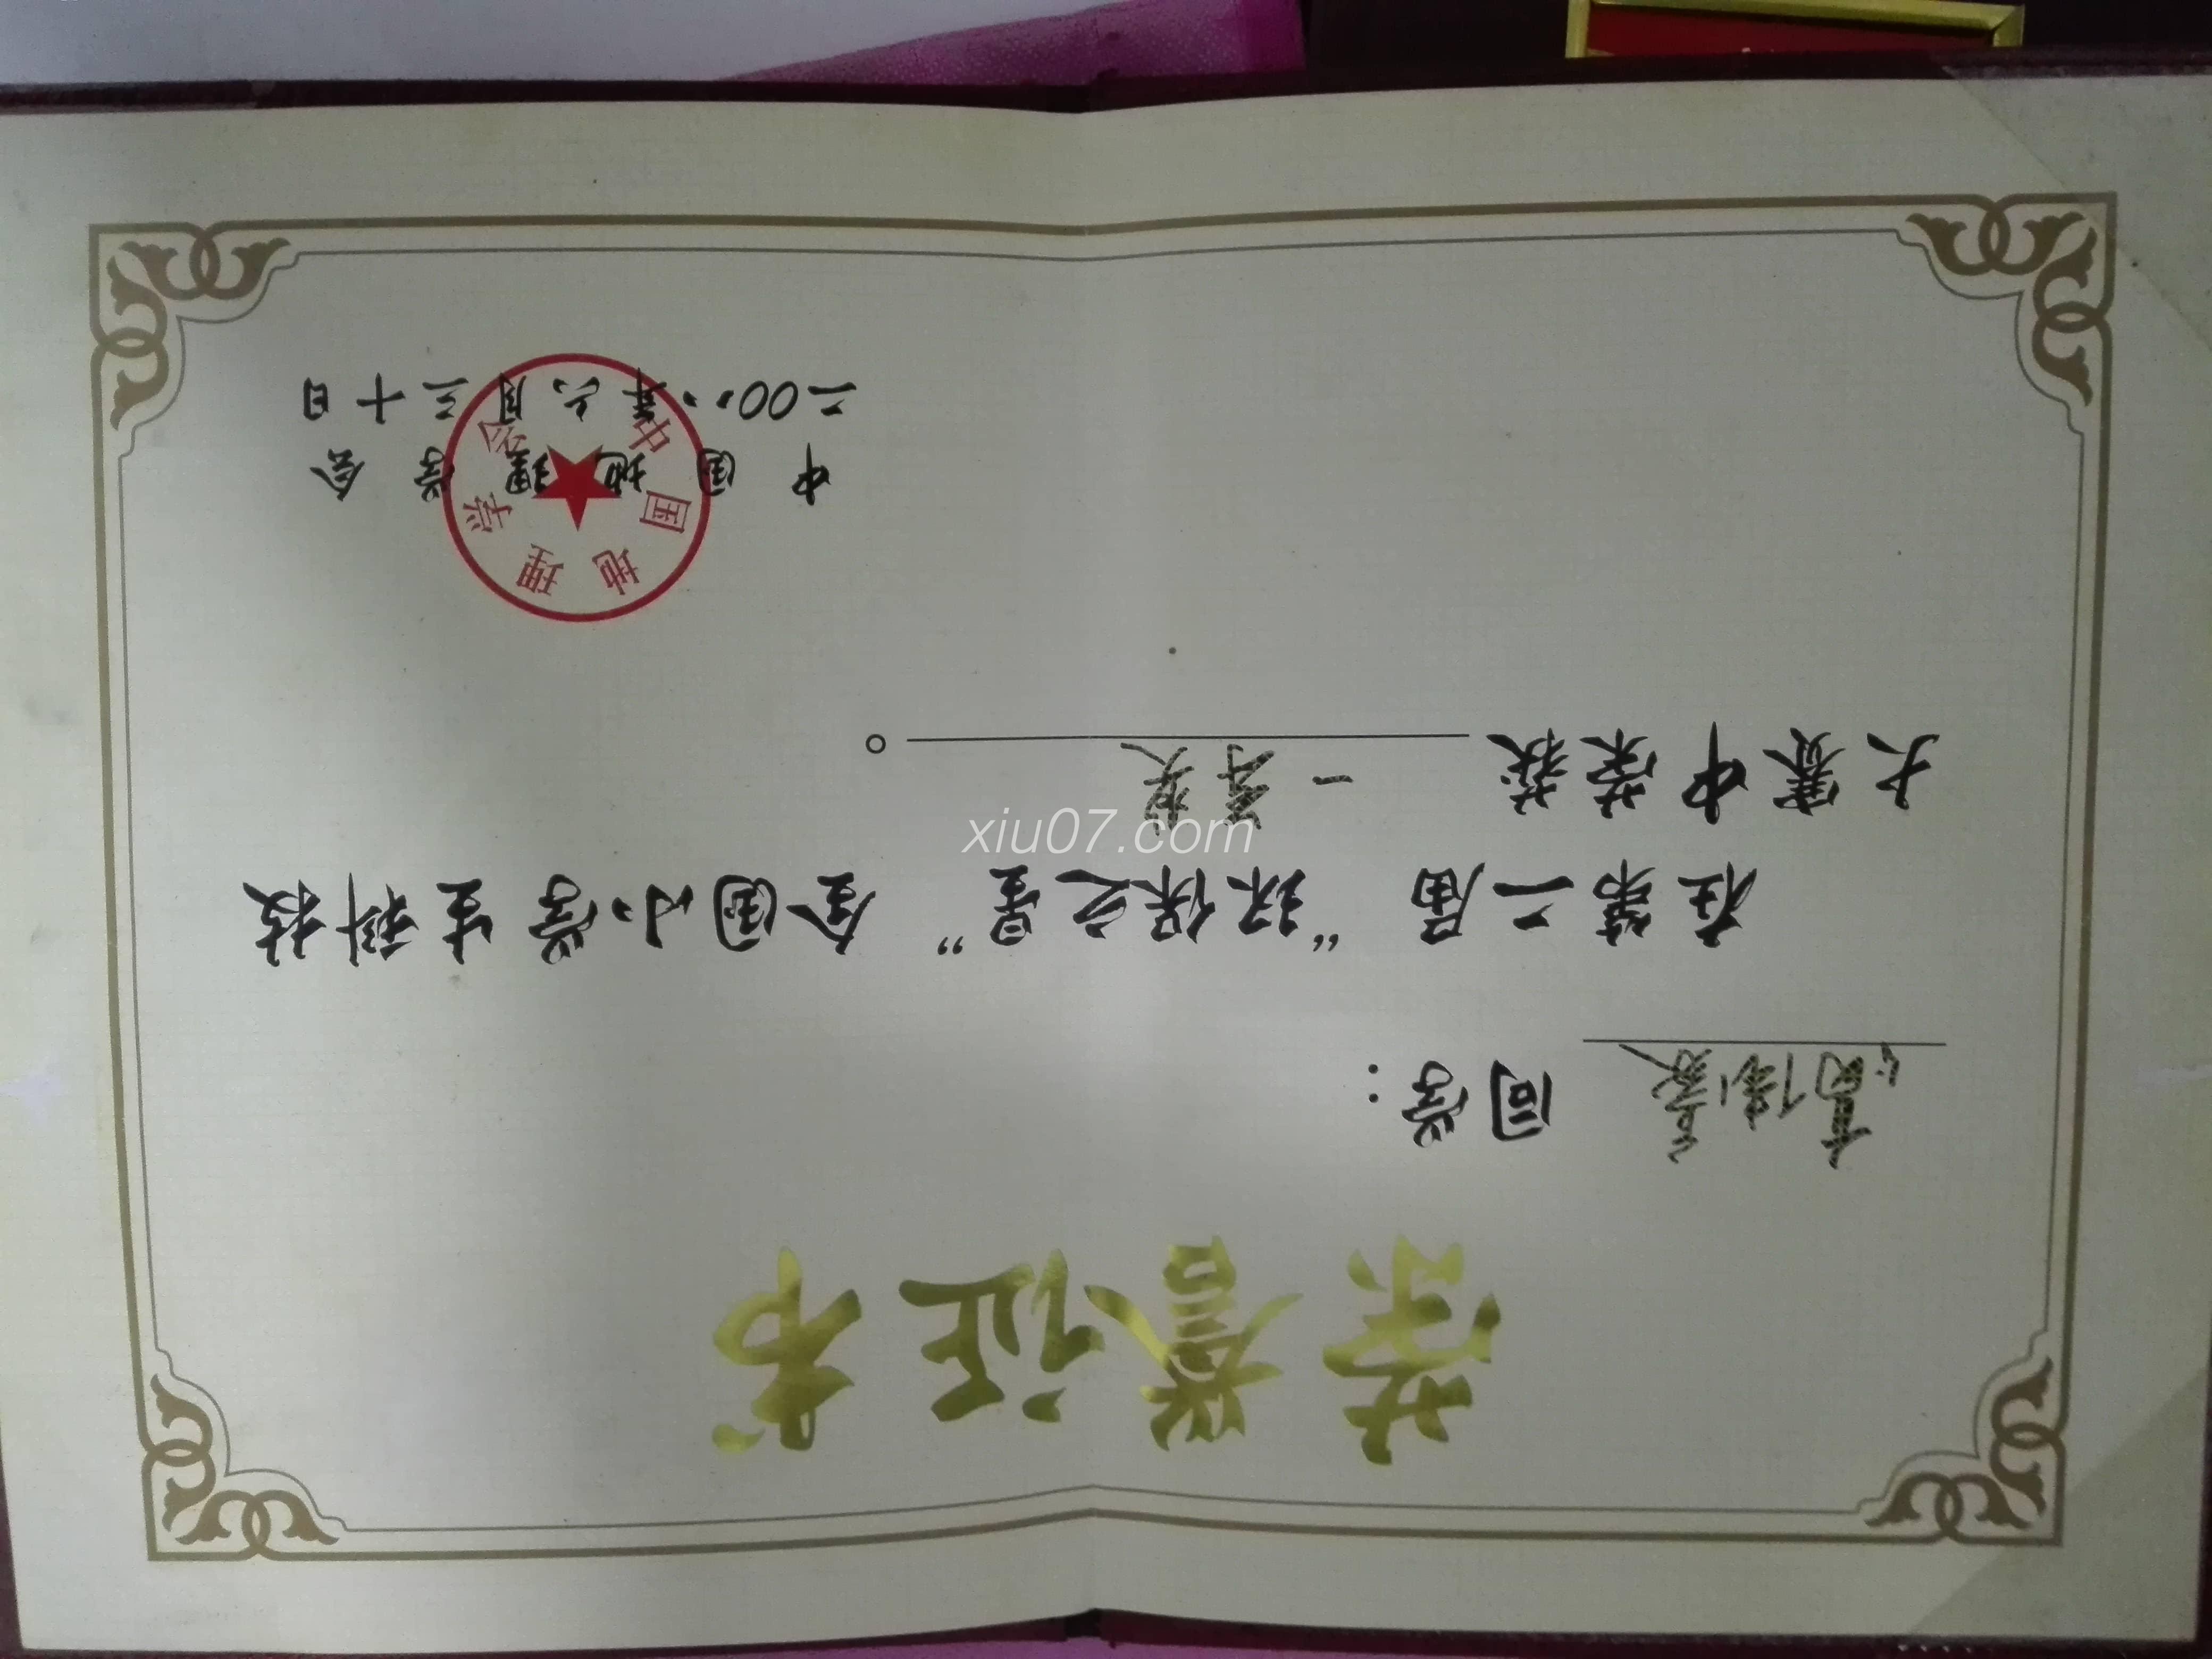 荣誉证书
同学：
在第二届“环保之星”全国小学生科技
大赛中荣获 一等奖 。
中国地理学会
二00八年六月三十日
中国地理学会
xiu07.com